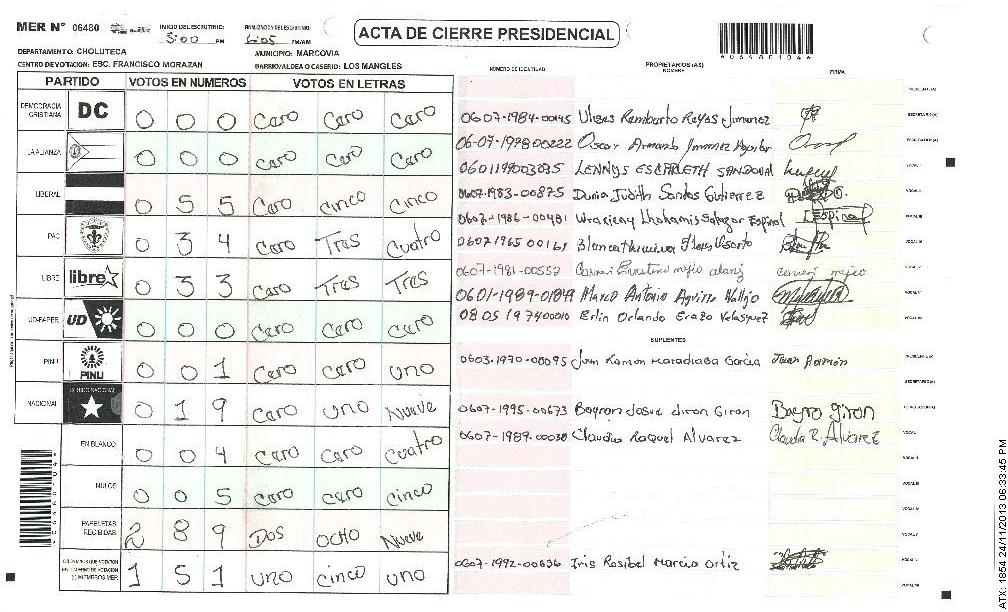 MER N° 06480 INICIO DEL ESCRUTINIO: 3:00 PM FINALIZACIÓN DEL ESCRUTINIO: 6:05 PM/AM
ACTA DE CIERRE PRESIDENCIAL
DEPARTAMENTO: CHOLUTECA MUNICIPIO: MARCOVIA
CENTRO DE VOTACION: ESC. FRANCISCO MORAZAN BARRIO/ALDEA O CASERIO: LOS MANGLES
NUMERO DE IDENTIDAD PROPIETARIOS (AS) NOMBRE FIRMA
PARTIDO VOTOS EN NUMEROS VOTOS EN LETRAS
DEMOCRACIA CRISTIANA DC 0 0 0 Caro Caro Caro
LA ALIANZA 0 0 0 Caro Caro Caro
LIBERAL 0 5 5 Caro cinco cinco
PAC 0 3 4 Caro Tres Cuatro
LIBRE libre 0 3 3 Caro Tres Tres
UD-FAPER UD 0 0 0 Caro Caro Caro
PINU PINU 0 0 1 Caro Caro uno
NACIONAL 0 1 9 Caro uno Nueve
EN BLANCO 0 0 4 Caro Caro Cuatro
NULOS 0 0 5 Caro Caro cinco
PAPELETAS RECIBIDAS 2 8 9 Dos ocho Nueve
1 5 1 uno cinco uno
0607-1984-00145 Reyes Jimenez
06-07-197800222 Oscar Armando Jimenez Aguilar
LENNYS ESCARLETH SANDOVAL
0607-1983-00875 Dunia Judith Santos Gutierrez
0607-1986-00481 Espinal Espinal
0607-1981-00552
0601-1989-01849 Marco Antonio Aguirre Vallejo
0805197400010 Erlin Orlando Erazo Velasquez
SUPLENTES
0603-1970-00095 Juan Ramon Maradiaga Garcia Juan Ramón
0607-1995-00673 Bayron Josue Giron Giron Bayro giron
0607-1989-00038 Claudia Raquel Alvarez Claudia R. Alvarez
0607-1992-00636 Iris Rosibel Marcia ortiz
ATX: 1854 24/11/2013 06:33:45 PM